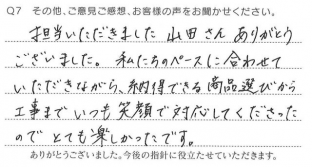 Q7 その他、ご意見ご感想、お客様の声をお聞かせください。
担当いただきました 山田さん ありがとう
ございました。 私たちのペースに合わせて
いただきながら、納得できる商品選びから
工事まで いつも笑顔で対応してくださった
ので とても楽しかったです。
ありがとうございました。今後の指針に役立たせていただきます。